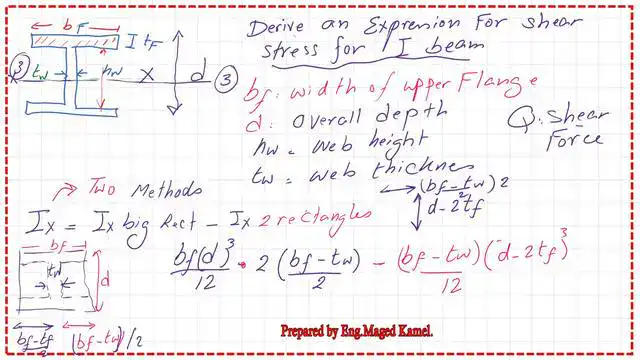 bf
I tf
Derive an Expression For shear
stress for I beam
3
tw
hw
X
d
3
bf: width of upper Flange
d: overall depth
Q: shear
Force
hw = web height
tw = web thicknes
Two Methods
(bf-tw)2
2
d-2tf
Ix = Ix big Rect - Ix 2 rectangles
bf
tw
d
bf(d)³/12 - 2 (bf-tw)/2 - (bf-tw)(d-2tf)³/12
bf-tf/2
(bf-tw)/2
Prepared by Eng.Maged Kamel.